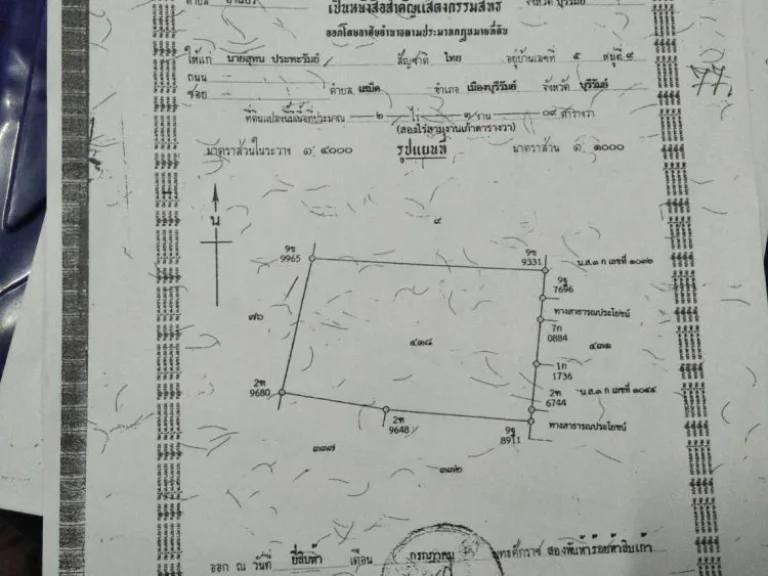 เป็นหนังสือสำคัญแสดงกรรมสิทธิ์
ออกโดยอาศัยอำนาจตามประมวลกฎหมายที่ดิน
ให้แก่ นายสุทน ประทะวัมย์ สัญชาติ ไทย อยู่บ้านเลขที่ ๕ หมู่ที่ ๘
ถนน
ซอย ตำบล เสม็ด อำเภอ เมืองบุรีรัมย์ จังหวัด บุรีรัมย์
77.
ที่ดินแปลงนี้มีเนื้อที่ประมาณ ๒ ไร่ ๓ งาน ๐๙ ตารางวา
(สองไร่สามงานเก้าตารางวา)
มาตราส่วนในระวาง ๑: ๔๐๐๐ รูปแผนที่ มาตราส่วน ๑: ๑๐๐๐
น
๙
9ข
9965
9ข
9331
น.ส.๓ ก เลขที่ ๑๐๓๖
9ฐ
7696
ทางสาธารณประโยชน์
๗๖
7ก
0884
๔๑๘
๔๓๑
1ก
1736
2ท
9680
2ท
6744
น.ส.๓ ก เลขที่ ๑๐๔๔
2ท
9648
9ฐ
8911
ทางสาธารณประโยชน์
๓๓๗
๓๓๖
ออก ณ วันที่ ยี่สิบห้า เดือน กรกฎาคม พุทธศักราช สองพันห้าร้อยห้าสิบเก้า